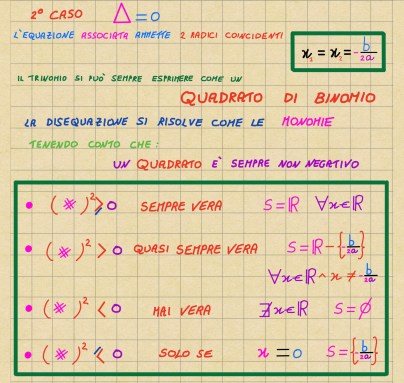 2° CASO Δ = 0
L'EQUAZIONE ASSOCIATA AMMETTE 2 RADICI COINCIDENTI
x₁ = x₂ = -b/2a
IL TRINOMIO SI PUÒ SEMPRE ESPRIMERE COME UN
QUADRATO DI BINOMIO
LA DISEQUAZIONE SI RISOLVE COME LE MONOMIE
TENENDO CONTO CHE:
UN QUADRATO È SEMPRE NON NEGATIVO
• (*)² ≥ 0 SEMPRE VERA S=ℝ ∀x∈ℝ
• (*)² > 0 QUASI SEMPRE VERA S=ℝ-{-b/2a}
∀x∈ℝ ^ x ≠ -b/2a
• (*)² < 0 MAI VERA ∄x∈ℝ S=∅
• (*)² ≤ 0 SOLO SE x = 0 S={-b/2a}